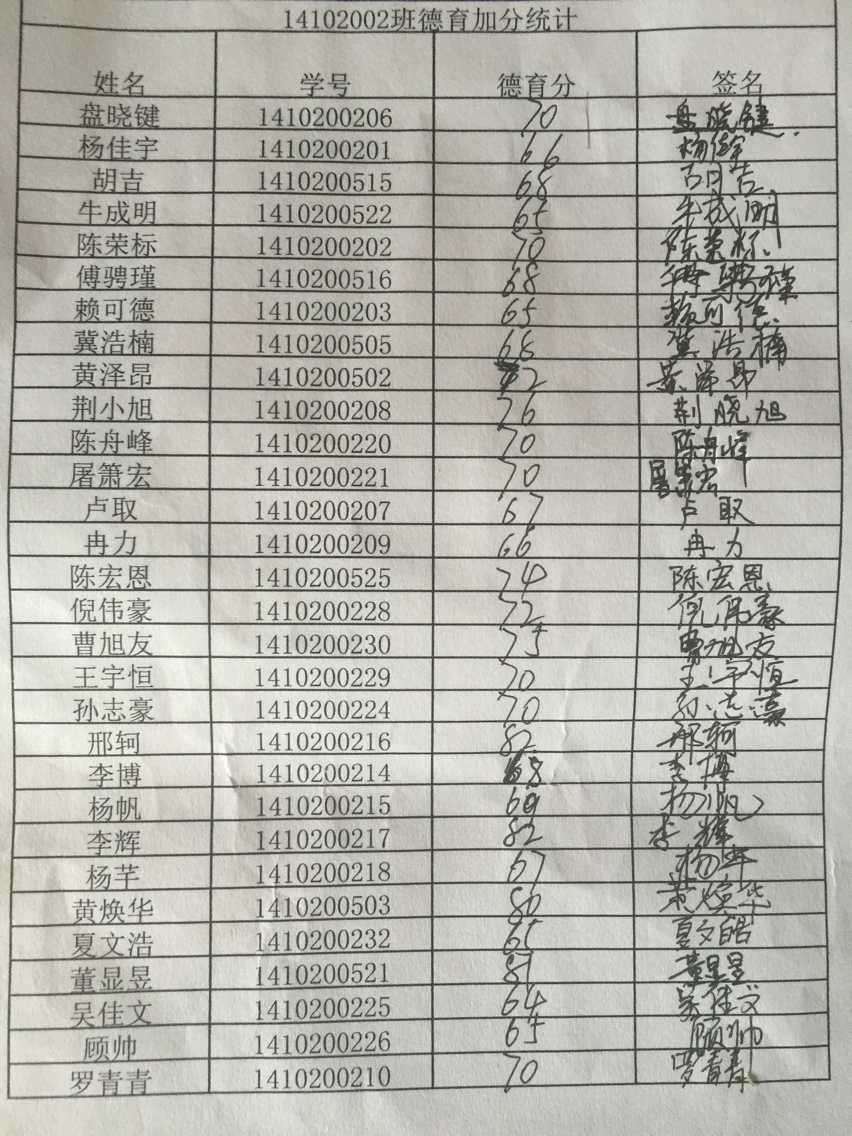 14102002班德育加分统计
姓名 学号 德育分 签名
盘晓键 1410200206 70 盘晓键
杨佳宇 1410200201 66 杨佳宇
胡吉 1410200515 68 胡吉
牛成明 1410200522 65 牛成明
陈荣标 1410200202 70 陈荣标
傅骋瑾 1410200516 68 傅骋瑾
赖可德 1410200203 65 赖可德
冀浩楠 1410200505 68 冀浩楠
黄泽昂 1410200502 72 黄泽昂
荆小旭 1410200208 76 荆晓旭
陈舟峰 1410200220 70 陈舟峰
屠箫宏 1410200221 70 屠箫宏
卢取 1410200207 67 卢取
冉力 1410200209 66 冉力
陈宏恩 1410200525 74 陈宏恩
倪伟豪 1410200228 72 倪伟豪
曹旭友 1410200230 75 曹旭友
王宇恒 1410200229 70 王宇恒
孙志豪 1410200224 70 孙志豪
邢轲 1410200216 82 邢轲
李博 1410200214 68 李博
杨帆 1410200215 69 杨帆
李辉 1410200217 82 李辉
杨芊 1410200218 67 杨芊
黄焕华 1410200503 80 黄焕华
夏文浩 1410200232 65 夏文皓
董显昱 1410200521 81 董显昱
吴佳文 1410200225 64 吴佳文
顾帅 1410200226 65 顾帅
罗青青 1410200210 70 罗青青